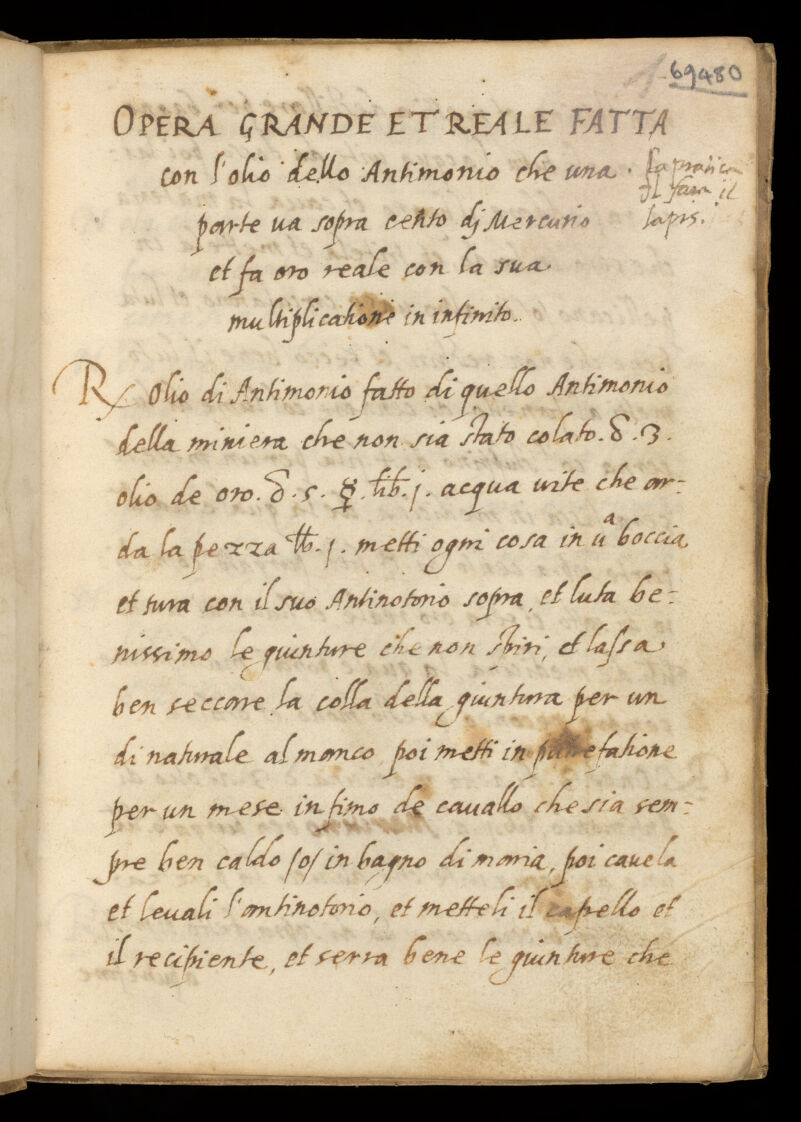 69480
OPERA GRANDE ET REALE FATTA
con l'olio dello Antimonio che una
parte ua sopra cento dj Mercurio
et fa oro reale con la sua
multiplicatione in infinito.
la pratica
di fare il
lapis.
R Olio di Antimonio fatto di quello Antimonio
della miniera che non sia stato colato. ʒ. 3.
olio de oro. ʒ. 5. ☿. lib. j. acqua uite che ar-
da la pezza lb. j. metti ogni cosa in uª boccia
et tura con il suo Antinotorio sopra, et luta be-
nissimo le giunture che non spiri, et lassa
ben seccare la colla della giuntura per un
di naturale al manco poi metti in putrefatione
per un mese in fimo de cauallo che sia sem-
pre ben caldo /o/ in bagno di maria, poi cauela
et leuali l'antinotorio, et metteli il capello et
il recipiente, et serra bene le giunture che